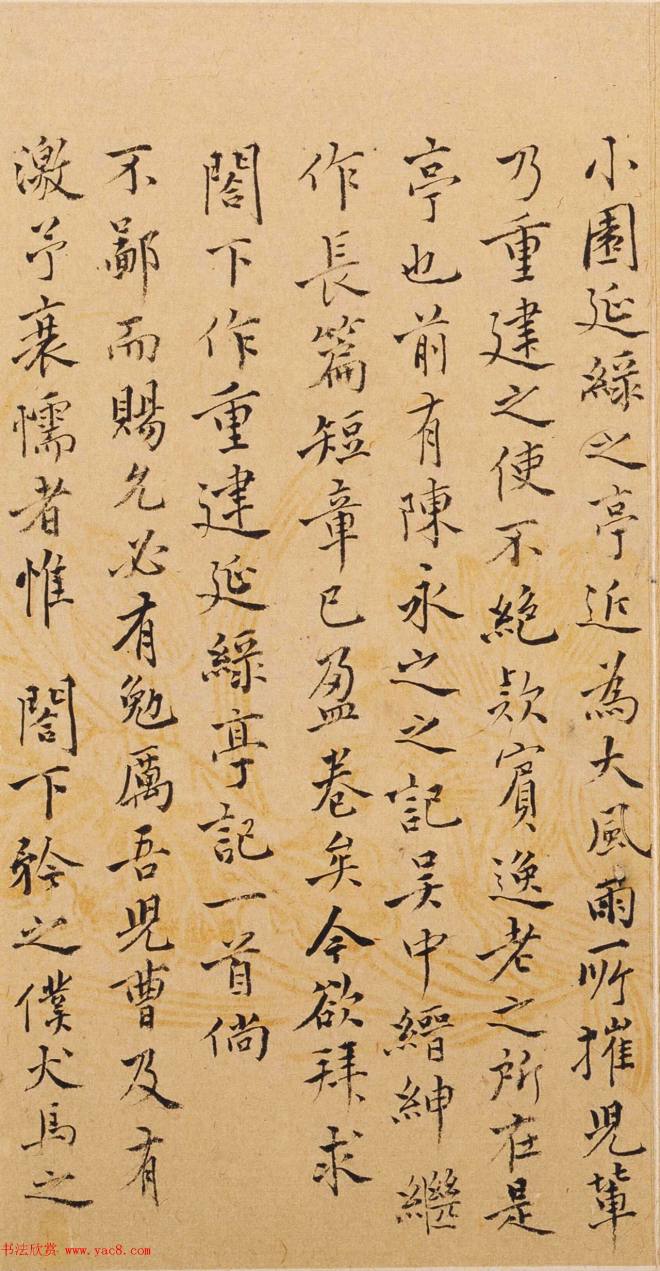 小園延綠之亭近為大風雨所摧兒輩
乃重建之使不絕欵賓逸老之所在是
亭也前有陳永之之記吴中縉紳繼
作長篇短章已盈卷矣今欲拜求
閤下作重建延綠亭記一首倘
不鄙而賜允必有勉厲吾兒曹及有
激予衰懦者惟 閤下矜之僕犬馬之
书法欣赏 www.yac8.com